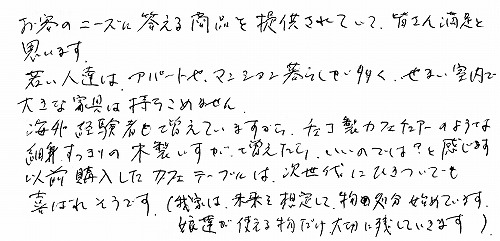 お客のニーズに答える商品を提供されていて、皆さん満足と
思います。
若い人達は、アパートや、マンション暮らしも多く、せまい室内で
大きな家具は持ちこめません。
海外経験者も増えていますから、チェコ製カフェチェアーのような
細身すっきりの木製いすが、増えたら、いいのでは?と感じます
以前購入したカフェテーブルは、次世代にひきついでも
喜ばれそうです。(我家は、未来を想定して、物の処分始めています。
娘達が使える物だけ大切に残していきます)